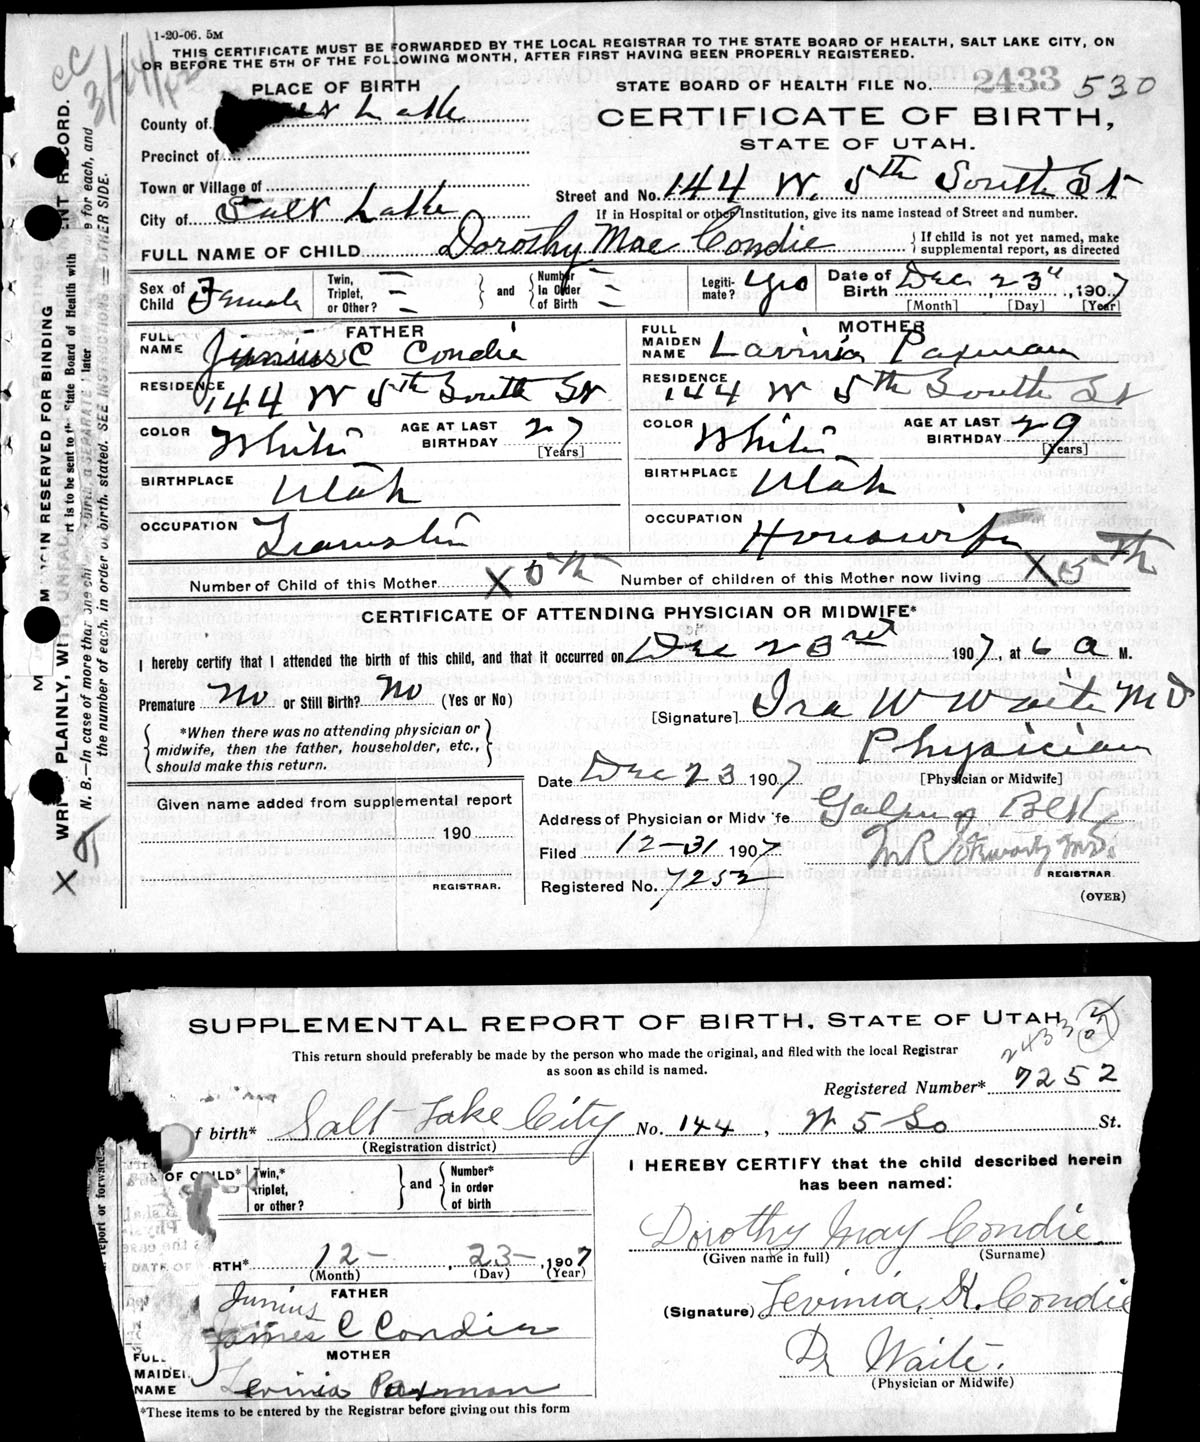 1-20-06. 5M
THIS CERTIFICATE MUST BE FORWARDED BY THE LOCAL REGISTRAR TO THE STATE BOARD OF HEALTH, SALT LAKE CITY, ON
OR BEFORE THE 5TH OF THE FOLLOWING MONTH, AFTER FIRST HAVING BEEN PROPERLY REGISTERED.
PLACE OF BIRTH
STATE BOARD OF HEALTH FILE No. 2433 530
County of Lake
CERTIFICATE OF BIRTH,
STATE OF UTAH.
Precinct of
Town or Village of
Street and No. 144 W. 5th South St
City of Salt Lake
If in Hospital or other Institution, give its name instead of Street and number.
FULL NAME OF CHILD Dorothy Mae Condie { If child is not yet named, make supplemental report, as directed
Sex of Child Female
Twin, Triplet, or Other? } and { Number In Order of Birth
Legitimate? Yes
Date of Birth Dec 23d, 1907
[Month] [Day] [Year]
FATHER
FULL NAME Junius C Condie
RESIDENCE 144 W 5th South St
COLOR White AGE AT LAST BIRTHDAY 27 [Years]
BIRTHPLACE Utah
OCCUPATION Teamster
MOTHER
FULL MAIDEN NAME Lavinia Paxman
RESIDENCE 144 W 5th South St
COLOR White AGE AT LAST BIRTHDAY 29 [Years]
BIRTHPLACE Utah
OCCUPATION Housewife
Number of Child of this Mother X 5th Number of children of this Mother now living X 5th
CERTIFICATE OF ATTENDING PHYSICIAN OR MIDWIFE*
I hereby certify that I attended the birth of this child, and that it occurred on Dec 23rd 1907, at 6 a M.
Premature No or Still Birth? No (Yes or No)
[Signature] Ira W Waite MD
{ *When there was no attending physician or midwife, then the father, householder, etc., should make this return. }
Physician
[Physician or Midwife]
Date Dec 23 1907
Given name added from supplemental report
190
REGISTRAR.
Address of Physician or Midwife
Filed 12-31 1907
REGISTRAR.
Registered No. 7252
(OVER)
MARGIN RESERVED FOR BINDING
N. B.—In case of more than one child
the number of each, in order of birth, stated. SEE INSTRUCTIONS = OTHER SIDE.
SUPPLEMENTAL REPORT OF BIRTH, STATE OF UTAH
2433
This return should preferably be made by the person who made the original, and filed with the local Registrar
as soon as child is named.
Registered Number* 7252
of birth* Salt Lake City No. 144, W 5 So St.
(Registration district)
OF CHILD*
Twin,* triplet, or other? } and { Number* in order of birth
I HEREBY CERTIFY that the child described herein
has been named:
Dorothy May Condie
(Given name in full) (Surname)
DATE OF BIRTH* 12- , 23- , 1907
(Month) (Day) (Year)
FATHER
Junius
James C Condie
(Signature) Levinia. K. Condie
MOTHER
FULL MAIDEN NAME Levinia Paxman
Dr Waite.
(Physician or Midwife)
*These items to be entered by the Registrar before giving out this form